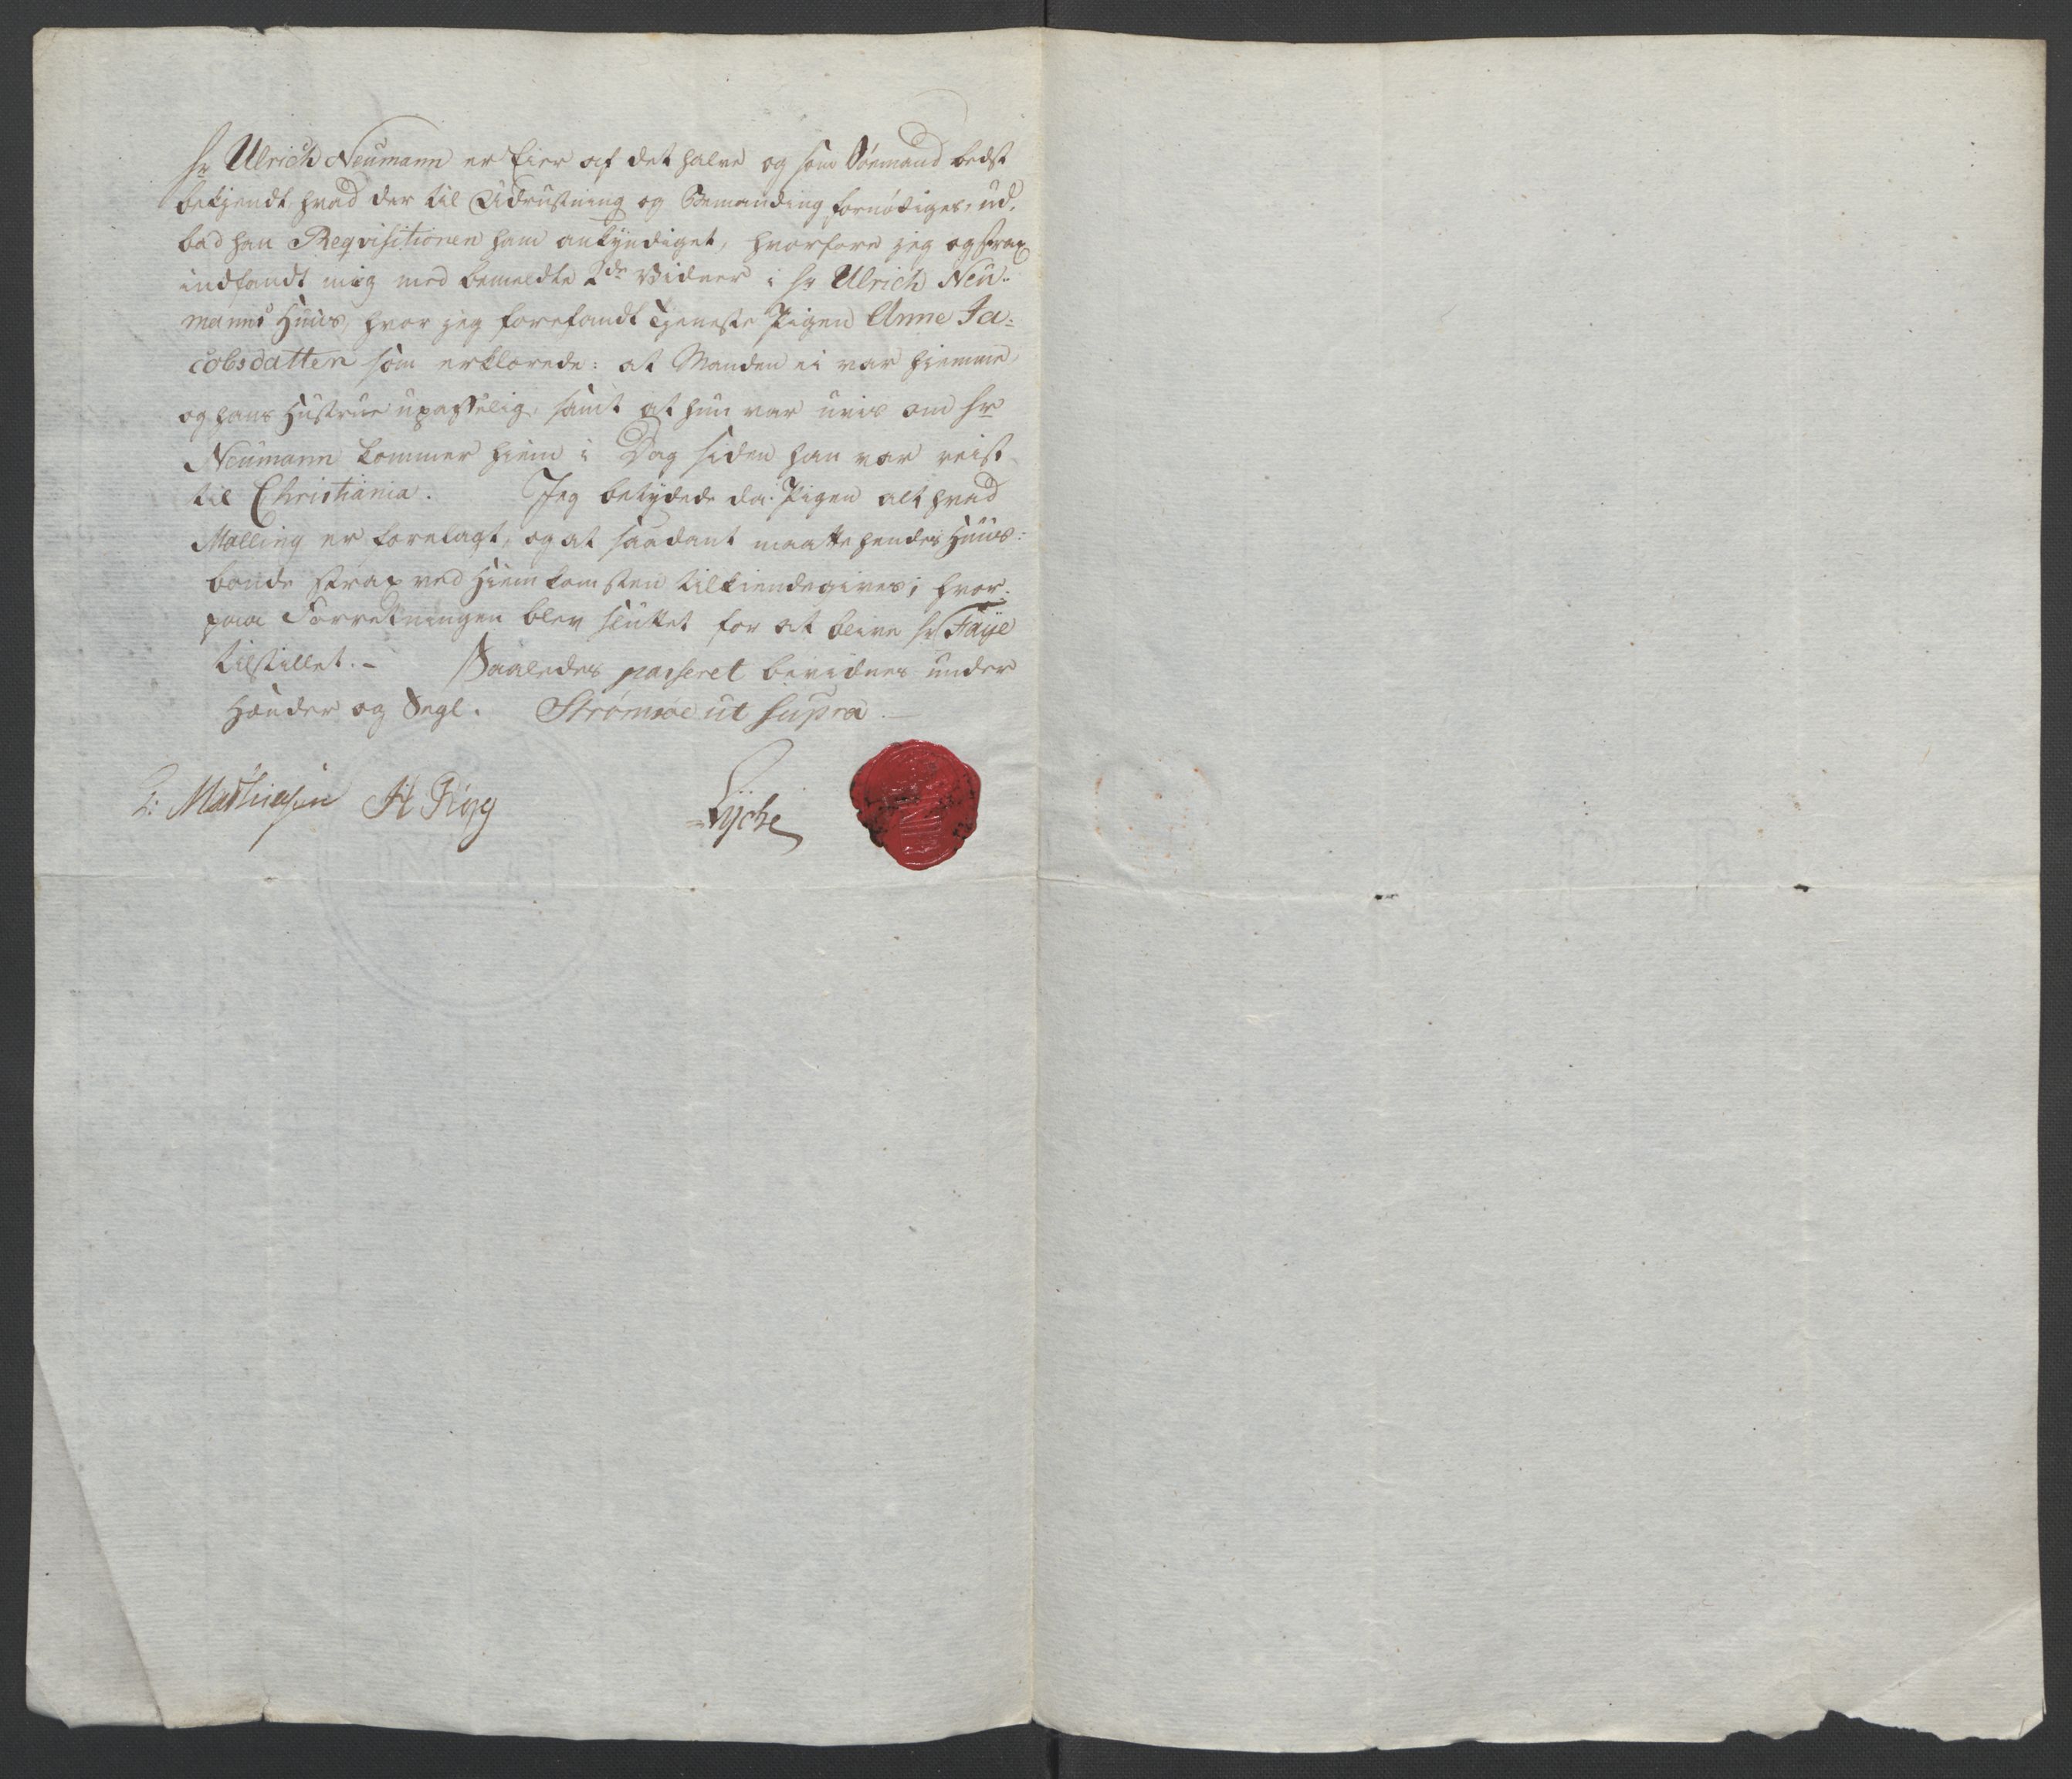 hr Ulrich Neumann er Eier af det halve og som Söemand bedst
bekjendt, hvad der til Udrustning og Bemanding fornödiges, ud,
bad han Reqvisitionen ham ankyndiget, hvorfore jeg og strax
indfandt mig med bemeldte 2de Vidner i hr Ulrich Neu-
manns Huus, hvor jeg forefandt Tjeneste Pigen Anne Ja=
cobsdatter som erklærede: at Manden ei var hiemme,
og hans Hustrue upasselig, samt at hun var uvis om hr
Neumann kommer hiem i Dag siden han var reist
til Christiania. Jeg betydede da Pigen alt hvad
Malling er forelagt, og at saadant maatte hendes Huus:
bonde strax ved Hiemkomsten tilkiendegives; hvor:
paa Forretningen blev sluttet for at blive hr Faÿe
tilstillet. - Saaledes passeret bevidnes under
Hænder og Segl. Strømsöe ut supra. -
Mathiesen H
Lÿche